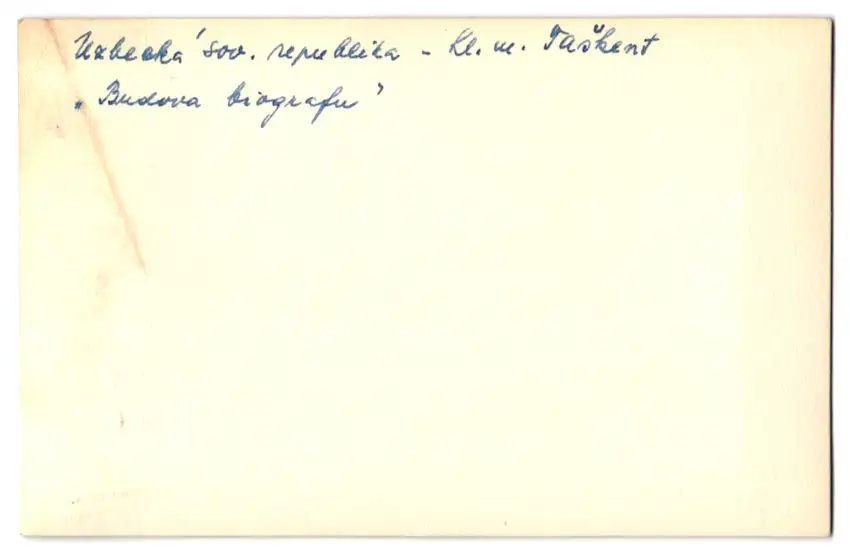 Uzbecká sov. republika - hl. m. Taškent
"Budova biografu"